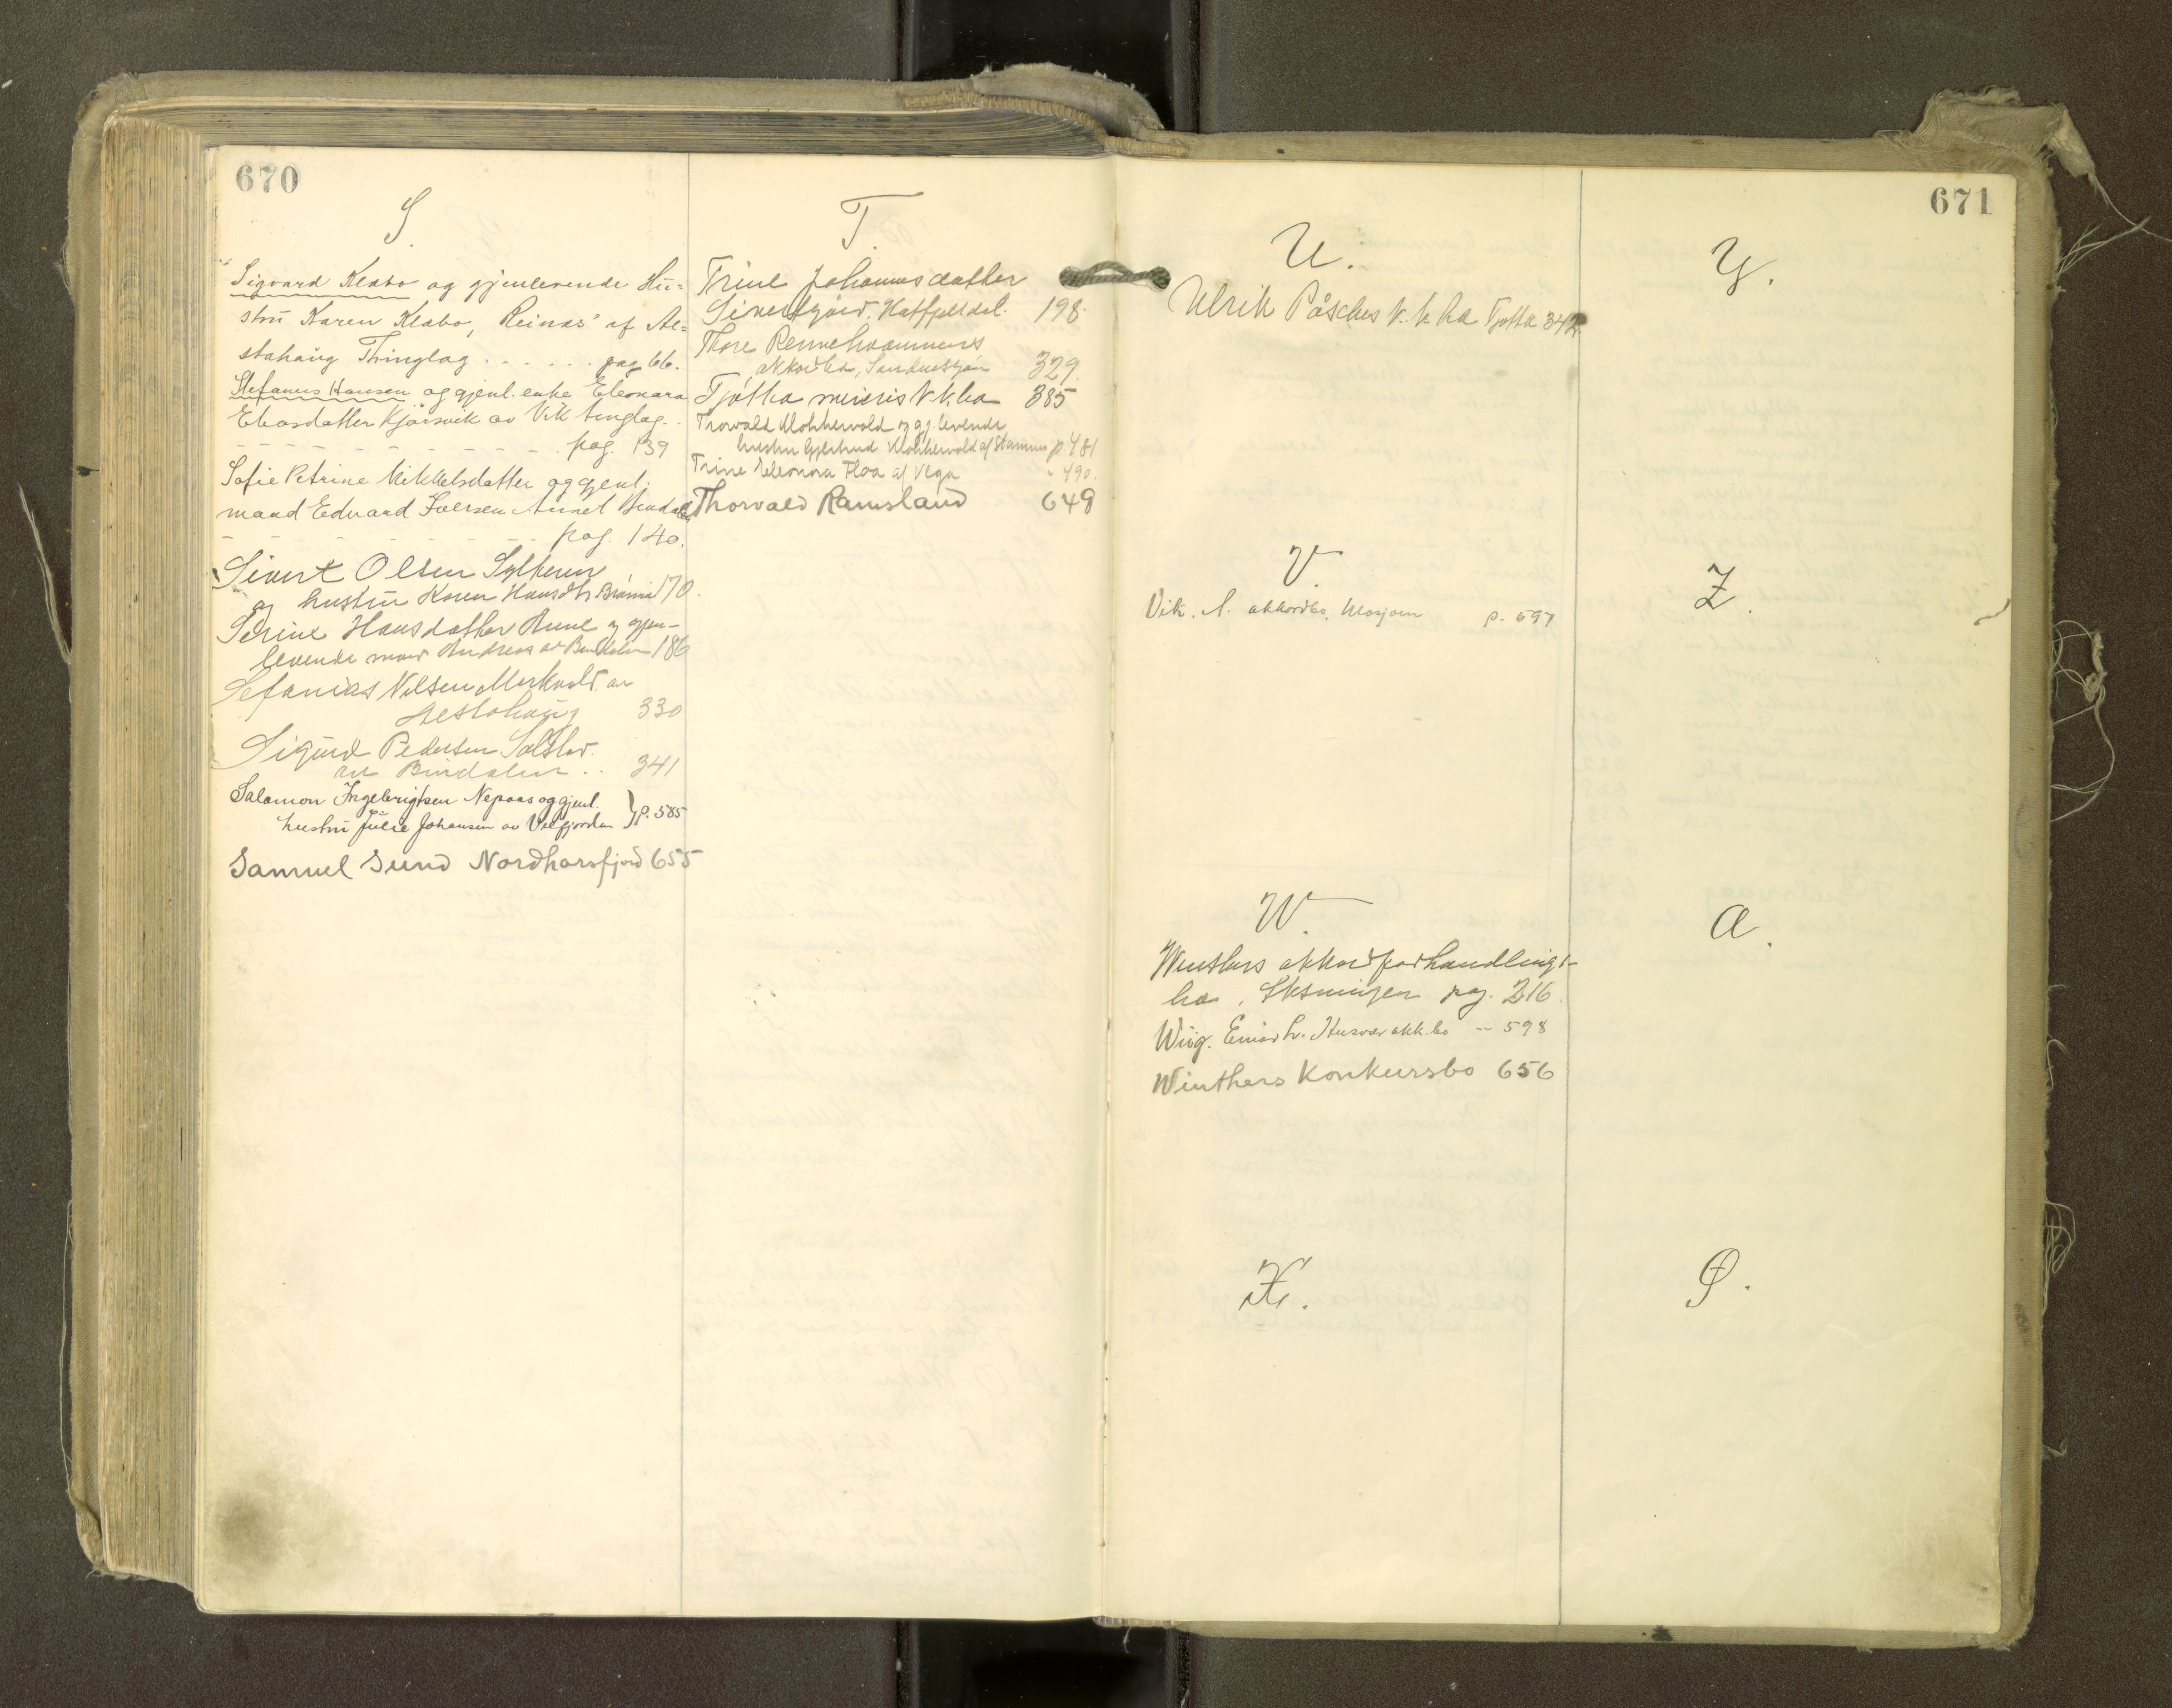 670
S.
Sigvard Klæbo og gjenlevende Hu=
stru Karen Klæbo, Reinås af Al=
stahaug Thinglag . . . . . . pag 66.
Stefanus Hansen og gjenl. enke Eleonara
Eliasdatter Kjærsvik av Vik tinglag. .
- - - - - - - - - pag. 139
Sofie Petrine Mikkelsdatter og gjenl.
mand Edvard Iversen Bindalen
- - - - - - - - pag. 140.
Sivert Olsen
og hustru Karen Hansdtr 170.
Serine Hansdatter og gjen-
levende mand Andreas av Bindalen 186
Sefanias Nilsen av
Alstahaug 330
Sigurd Pedersen
av Bindalen . . 341
Salamon Ingebrigtsen Nepaas og gjenl.
hustru Julie Johansen av Velfjorden } p. 585
Samuel Sund Nordhorsfjord 655
T.
Trine Johannesdatter
Sivertgård, Hatfjelldal. 198.
Thore
akkordbo, Sandnessjøen 329.
Tjøtta meieris k.k.bo 385
Thorvald Klokkervold og gj.levende
hustru Klokkervold af Stamnes p. 481
Trine Eleonora Floa af Vega " 490.
Thorvald Ramsland 649
671
U.
Ulrik Påsches k.k. bo Tjøtta 342.
V.
Vik. A. akkordbo, Mosjøen p. 597
W.
Winthers akkordforhandlings-
bo, pag. 216.
Wiig. Einar h. Husvær akk.bo -- 598
Winthers Konkursbo 656
X.
Y.
Z.
Æ.
Ø.